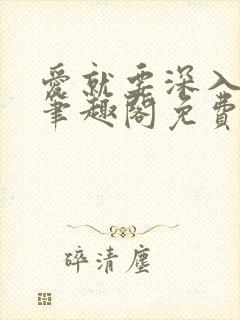 愛就要深入
筆趣閣免費
碎清塵